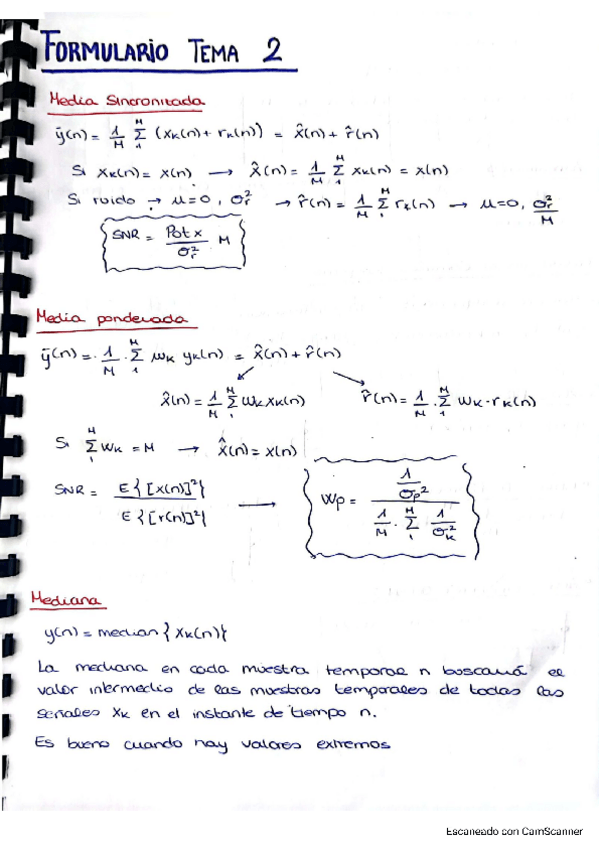 FORMULARIO TEMA 2
Media Sincronizada
ȳ(n) = 1/M Σ₁ᴹ (xₖ(n) + rₖ(n)) = x̂(n) + r̂(n)
Si xₖ(n) = x(n) → x̂(n) = 1/M Σ₁ᴹ xₖ(n) = x(n)
Si ruido → μ=0, σᵣ² → r̂(n) = 1/M Σ₁ᴹ rₖ(n) → μ=0, σᵣ²/M
SNR = Pot x/σᵣ² M
Media ponderada
ȳ(n) = 1/M · Σ₁ᴹ wₖ yₖ(n) = x̂(n) + r̂(n)
x̂(n) = 1/M Σ₁ᴹ wₖ xₖ(n) r̂(n) = 1/M · Σ₁ᴹ wₖ · rₖ(n)
Si Σ₁ᴹ wₖ = M → x̂(n) = x(n)
SNR = E{[x(n)]²}/E{[r(n)]²} → Wp = (1/σp²)/(1/M · Σ₁ᴹ 1/σₖ²)
Mediana
y(n) = median{xₖ(n)}
La mediana en cada muestra temporal n buscará el
valor intermedio de las muestras temporales de todas las
señales xₖ en el instante de tiempo n.
Es bueno cuando hay valores extremos
Escaneado con CamScanner